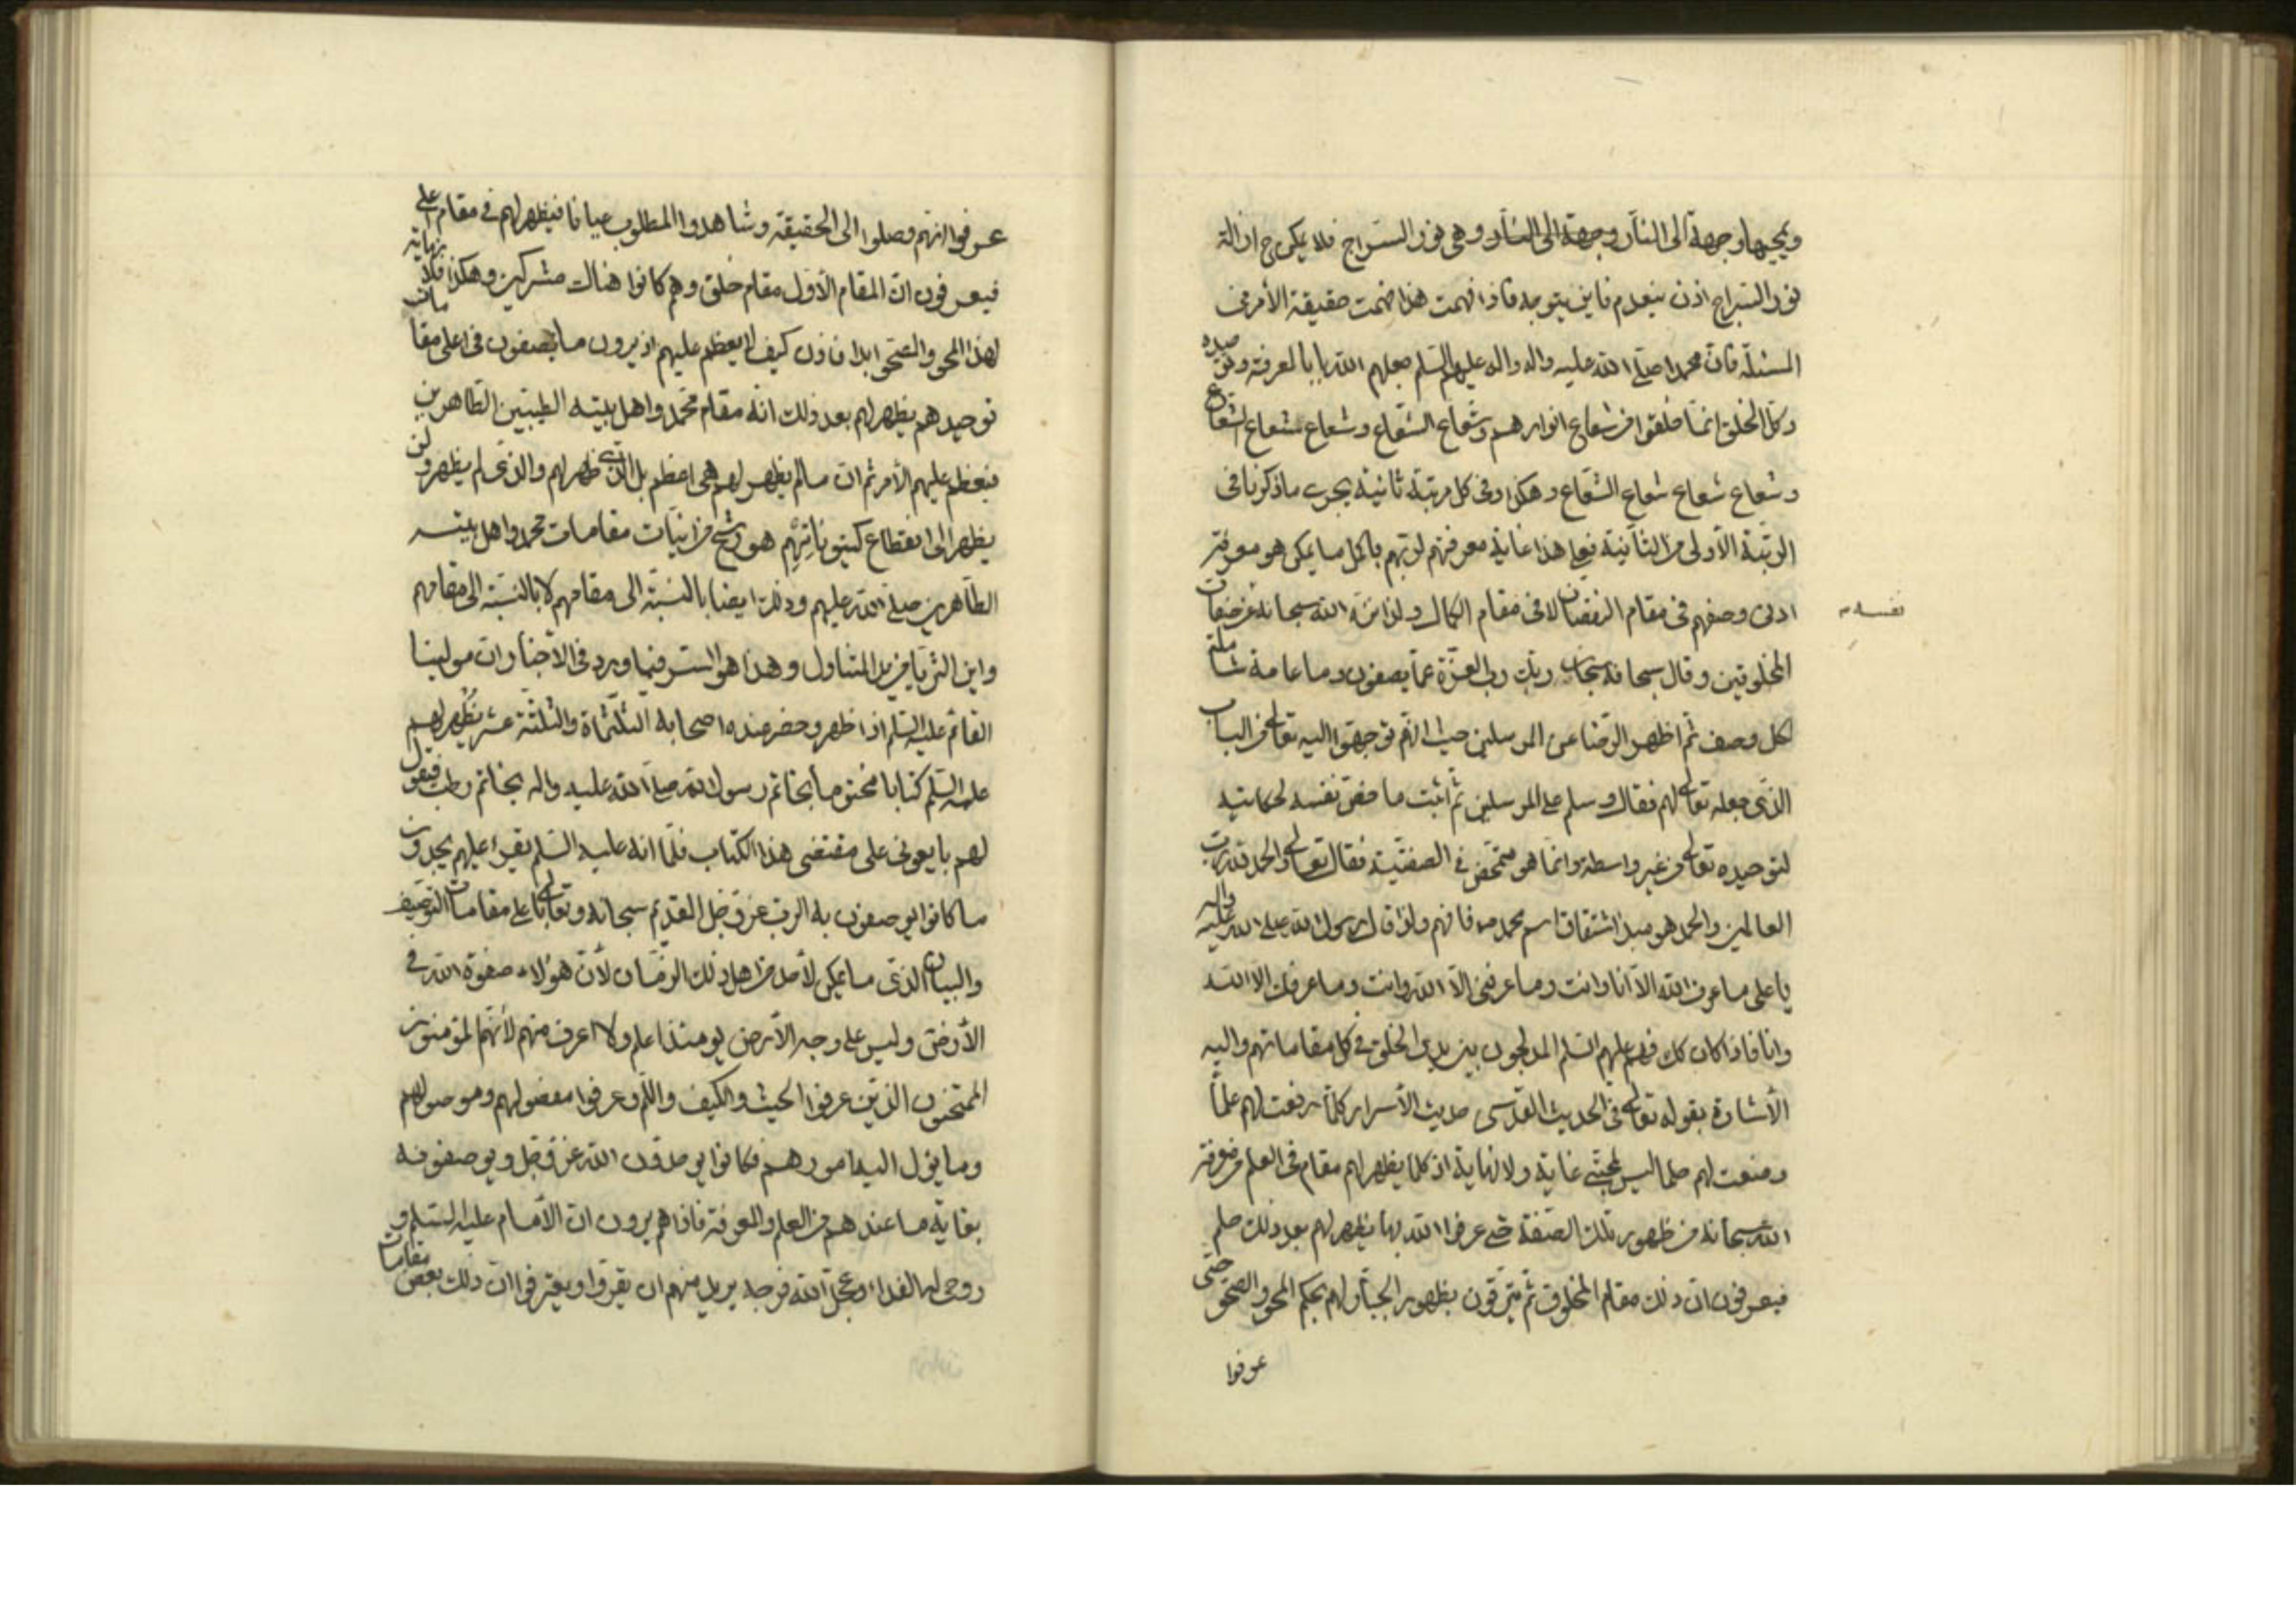 ويجيبها وجهة الى النار وجهة الى النار وهى نور السراج فلا يمكن ح ازالة
نور السراج اذن ينعدم فاين يتوجه فاذا فهمت هذا فهمت حقيقة الأمر فى
المسئلة فان محمدا صلى الله عليه واله واله عليهم السلم جعلهم الله بابا لمعرفته وتوحيده
وكل الخلق انما خلقوا من شعاع انوارهم وشعاع الشعاع وشعاع شعاع الشعاع
وشعاع شعاع شعاع الشعاع وهكذا وفى كل مرتبة ثانية يجرى ما ذكرنا فى
الرتبة الأولى من الثانية فعلى هذا غاية معرفتهم لربهم بأكمل ما يمكن هو معرفة
ادنى وصفهم فى مقام النقصان لا فى مقام الكمال ولذا نزه الله سبحانه عن صفات
نفسه
المخلوقين وقال سبحانه سبحان ربك رب العزة عما يصفون وما عامة شاملة
لكل وصف ثم اظهر الرضا عن المرسلين حيث انهم توجهوا اليه تعالى من الباب
الذى جعله تعالى لهم فقال وسلم على المرسلين ثم اثبت ما خص نفسه لحكايته
لتوحيده تعالى من غير واسطة وانما هو متمحض فى الصفتية فقال تعالى والحمد لله رب
العالمين والحمد هو مبدأ اشتقاق اسم محمد ص فافهم ولذا قال رسول الله صلى الله عليه واله
يا على ما عرف الله الا انا وانت وما عرفنى الا الله وانت وما عرفك الا الله
وانا فاذا كان كك فهم عليهم السلم المدلجون بين يدى الخلق فى كل مقاماتهم واليه
الأشارة بقوله تعالى فى الحديث القدسى حديث الأسرار كلما رفعت لهم علما
وضعت لهم حلما ليس لمحبتى غاية ولا نهاية اذ كلما يظهر لهم مقام فى العلم من معرفة
الله سبحانه من ظهور تلك الصفة حتى عرفوا الله بها يظهر لهم بعد ذلك حلم
فيعرفون ان ذلك مقام المخلوق ثم يترقون بظهور الجبار لهم بحكم المحو والصحو حتى
عرفوا
عرفوا انهم وصلوا الى الحقيقة وشاهدوا المطلوب عيانا فيظهر لهم فى مقام اعلى
فيعرفون ان المقام الأول مقام خلق وهم كانوا هناك مشركين وهكذا فلا نهاية
لهذا المحو والصحو ابدا فاذن كيف لا يعظم عليهم اذ يرون ما يصفون فى اعلى مقامات
توحيدهم يظهر لهم بعد ذلك انه مقام محمد واهل بيته الطيبين الطاهرين
فيعظم عليهم الأمر ثم ان ما لم يظهر لهم هى اعظم بل الذى ظهر لهم والذى لم يظهر ولن
يظهر الى انقطاع كينوناتهم هو رشح من انيات مقامات محمد واهل بيته
الطاهرين صلى الله عليهم وذلك ايضا بالنسبة الى مقامهم لا بالنسبة الى مقامهم
واين الثريا من يد المتناول وهذا هو السر فيما ورد فى الأخبار ان مولينا
القائم عليه السلم اذا ظهر وحضر عنده اصحابه الثلثماة والثلثة عشر يظهر لهم
عليه السلم كتابا مختوما بخاتم رسول الله صلى الله عليه واله بخاتم رطب فيقول
لهم بايعونى على مقتضى هذا الكتاب فلما انه عليه السلم يقرا عليهم يجدون
ما كانوا يوصفون به الرب عز وجل القديم سبحانه وتعالى باعلى مقامات التوصيف
والبيان الذى ما يمكن لأحد من اهل ذلك الزمان لأن هؤلاء صفوة الله فى
الأرض وليس على وجه الأرض يومئذ اعلم ولا اعرف منهم لأنهم المؤمنون
الممتحنون الذين عرفوا الحيث والكيف واللم وعرفوا مفصولهم وموصولهم
وما يؤل اليه امورهم فكانوا يوحدون الله عز وجل ويوصفونه
بغاية ما عندهم من العلم والمعرفة فاذا هم يرون ان الأمام عليه السلم و
روحى له الفداء وعجل الله فرجه يريد منهم ان يقروا ويعترفوا ان ذلك بعض مقامات